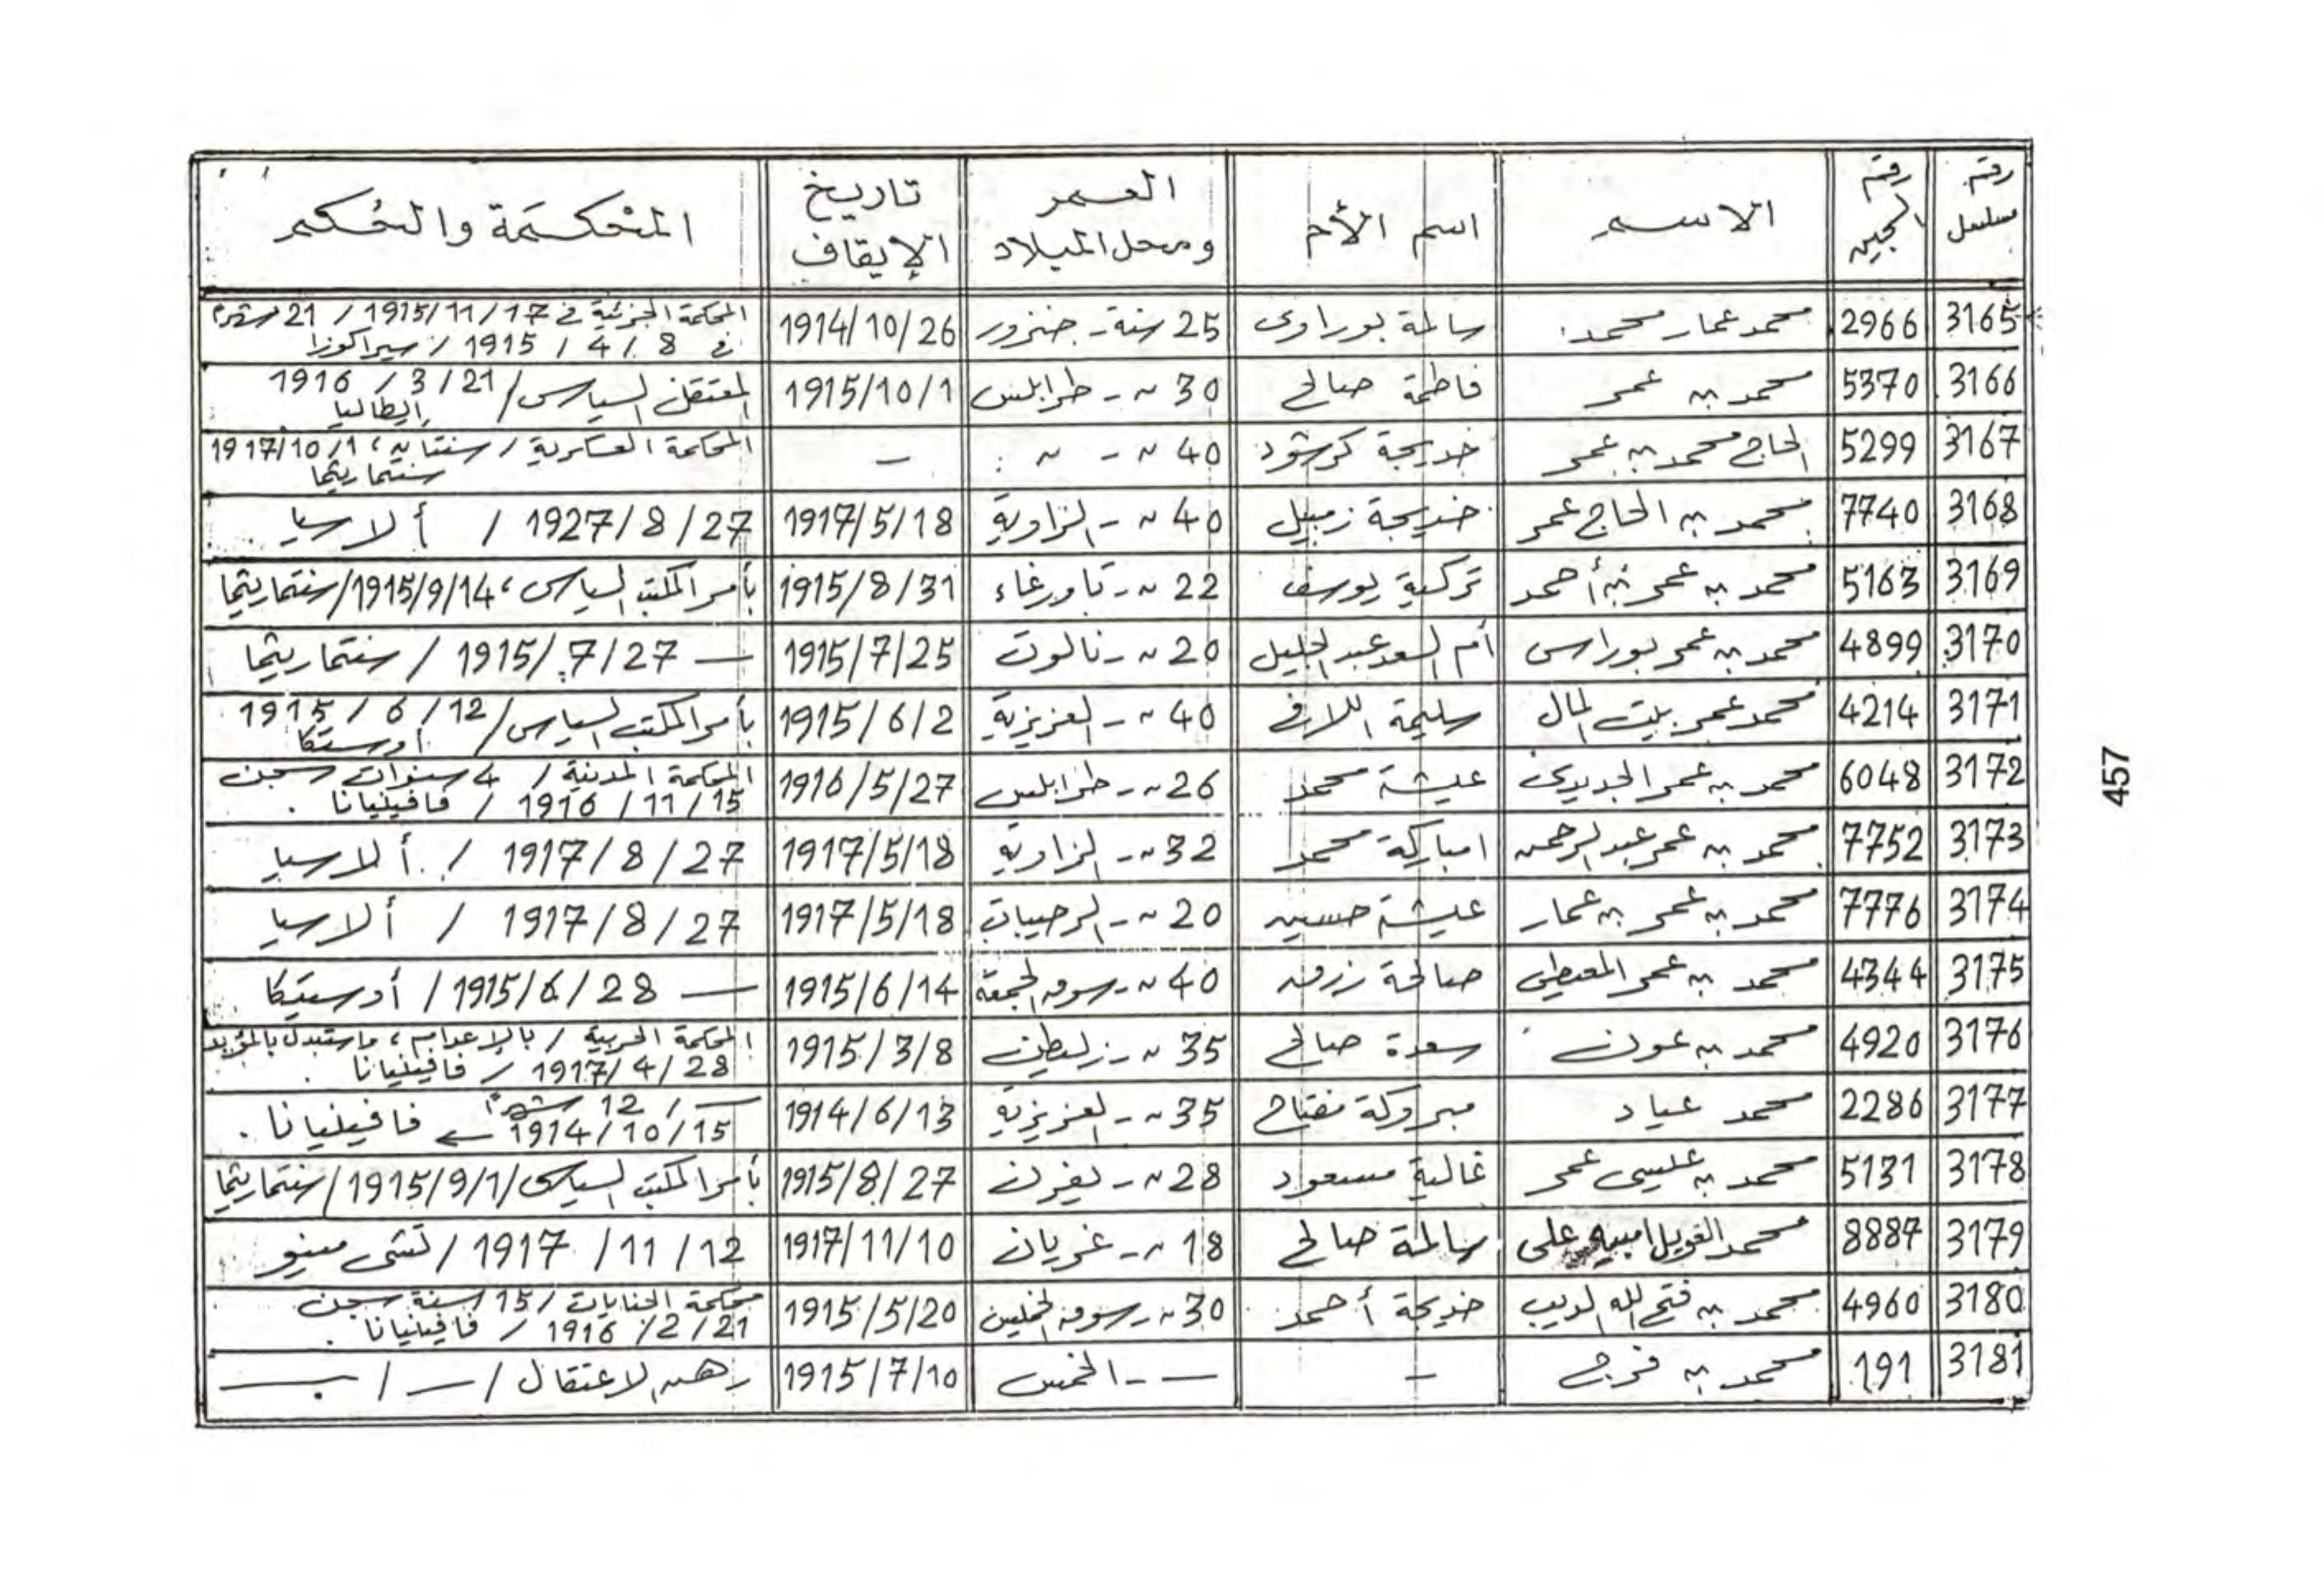 رقم مسلسل | رقم السجين | الاسم | اسم الأم | العمر ومحل الميلاد | تاريخ الإيقاف | المحكمة والحكم
3165 | 2966 | محمد عمار محمد | سالمة بوراوى | 25 سنة - جنزور | 1914/10/26 | المحكمة الجزئية في 1915/11/17 / 21 شهرًا في 8 / 4 / 1915 / سيراكوزا
3166 | 5370 | محمد بن عمر | فاطمة صالح | 30 〃 - طرابلس | 1915/10/1 | المعتقل السياسى / 21 / 3 / 1916 إيطاليا
3167 | 5299 | الحاج محمد بن عمر | خديجة كرشود | 40 〃 - 〃 | - | المحكمة العسكرية / سنتان، 1917/10/1 سنتماريتما
3168 | 7740 | محمد بن الحاج عمر | خديجة زمبيل | 40 〃 - الزاوية | 1917/5/18 | 1927/8/27 / ألارسيا
3169 | 5163 | محمد بن عمر بن أحمد | تركية يوسف | 22 〃 - تاورغاء | 1915/8/31 | بأمر المكتب السياسى، 1915/9/14 / سنتماريتما
3170 | 4899 | محمد بن عمر بوراس | أم السعد عبد الجليل | 20 〃 - نالوت | 1915/7/25 | — 1915/7/27 / سنتماريتما
3171 | 4214 | محمد عمر بيت المال | سليمة اللافى | 40 〃 - العزيزية | 1915/6/2 | بأمر المكتب السياسى / 12 / 6 / 1915 أوستكا
3172 | 6048 | محمد بن عمر الجديدى | عيشة محمد | 26 〃 - طرابلس | 1916/5/27 | المحكمة المدنية / 4 سنوات سجن 15 / 11 / 1916 / فافينيانا .
3173 | 7752 | محمد بن عمر عبد الرحمن | امباركة محمد | 32 〃 - الزاوية | 1917/5/18 | 1917/8/27 / ألارسيا
3174 | 7776 | محمد بن عمر بن عمار | عيشة حسين | 20 〃 - الرحيبات | 1917/5/18 | 1917/8/27 / ألارسيا
3175 | 4344 | محمد بن عمر المعيطى | صالحة زرق | 40 〃 - سوق الجمعة | 1915/6/14 | — 1915/6/28 / أوستيكا
3176 | 4920 | محمد بن عون | سعدة صالح | 35 〃 - زليطن | 1915/3/8 | المحكمة الحربية / بالإعدام، واستبدل بالمؤبد 28 / 4 / 1917 / فافينيانا .
3177 | 2286 | محمد عياد | مبروكة مفتاح | 35 〃 - العزيزية | 1914/6/13 | — / 12 شهرًا 1914/10/15 ← فافينيانا .
3178 | 5131 | محمد بن عيسى عمر | غالية مسعود | 28 〃 - يفرن | 1915/8/27 | بأمر المكتب السياسى / 1915/9/1 / سنتماريتما
3179 | 8887 | محمد الغويل على | سالمة صالح | 18 〃 - غريان | 1917/11/10 | 12 / 11 / 1917
3180 | 4960 | محمد بن فتح الله الديب | خديجة أحمد | 30 〃 - سوق الخميس | 1915/5/20 | محكمة الجنايات / 15 سنة سجن 21 / 2 / 1916 / فافينيانا .
3181 | 191 | محمد بن فرج | - | — - الخمس | 1915/7/10 | رهن الاعتقال / — / —
457